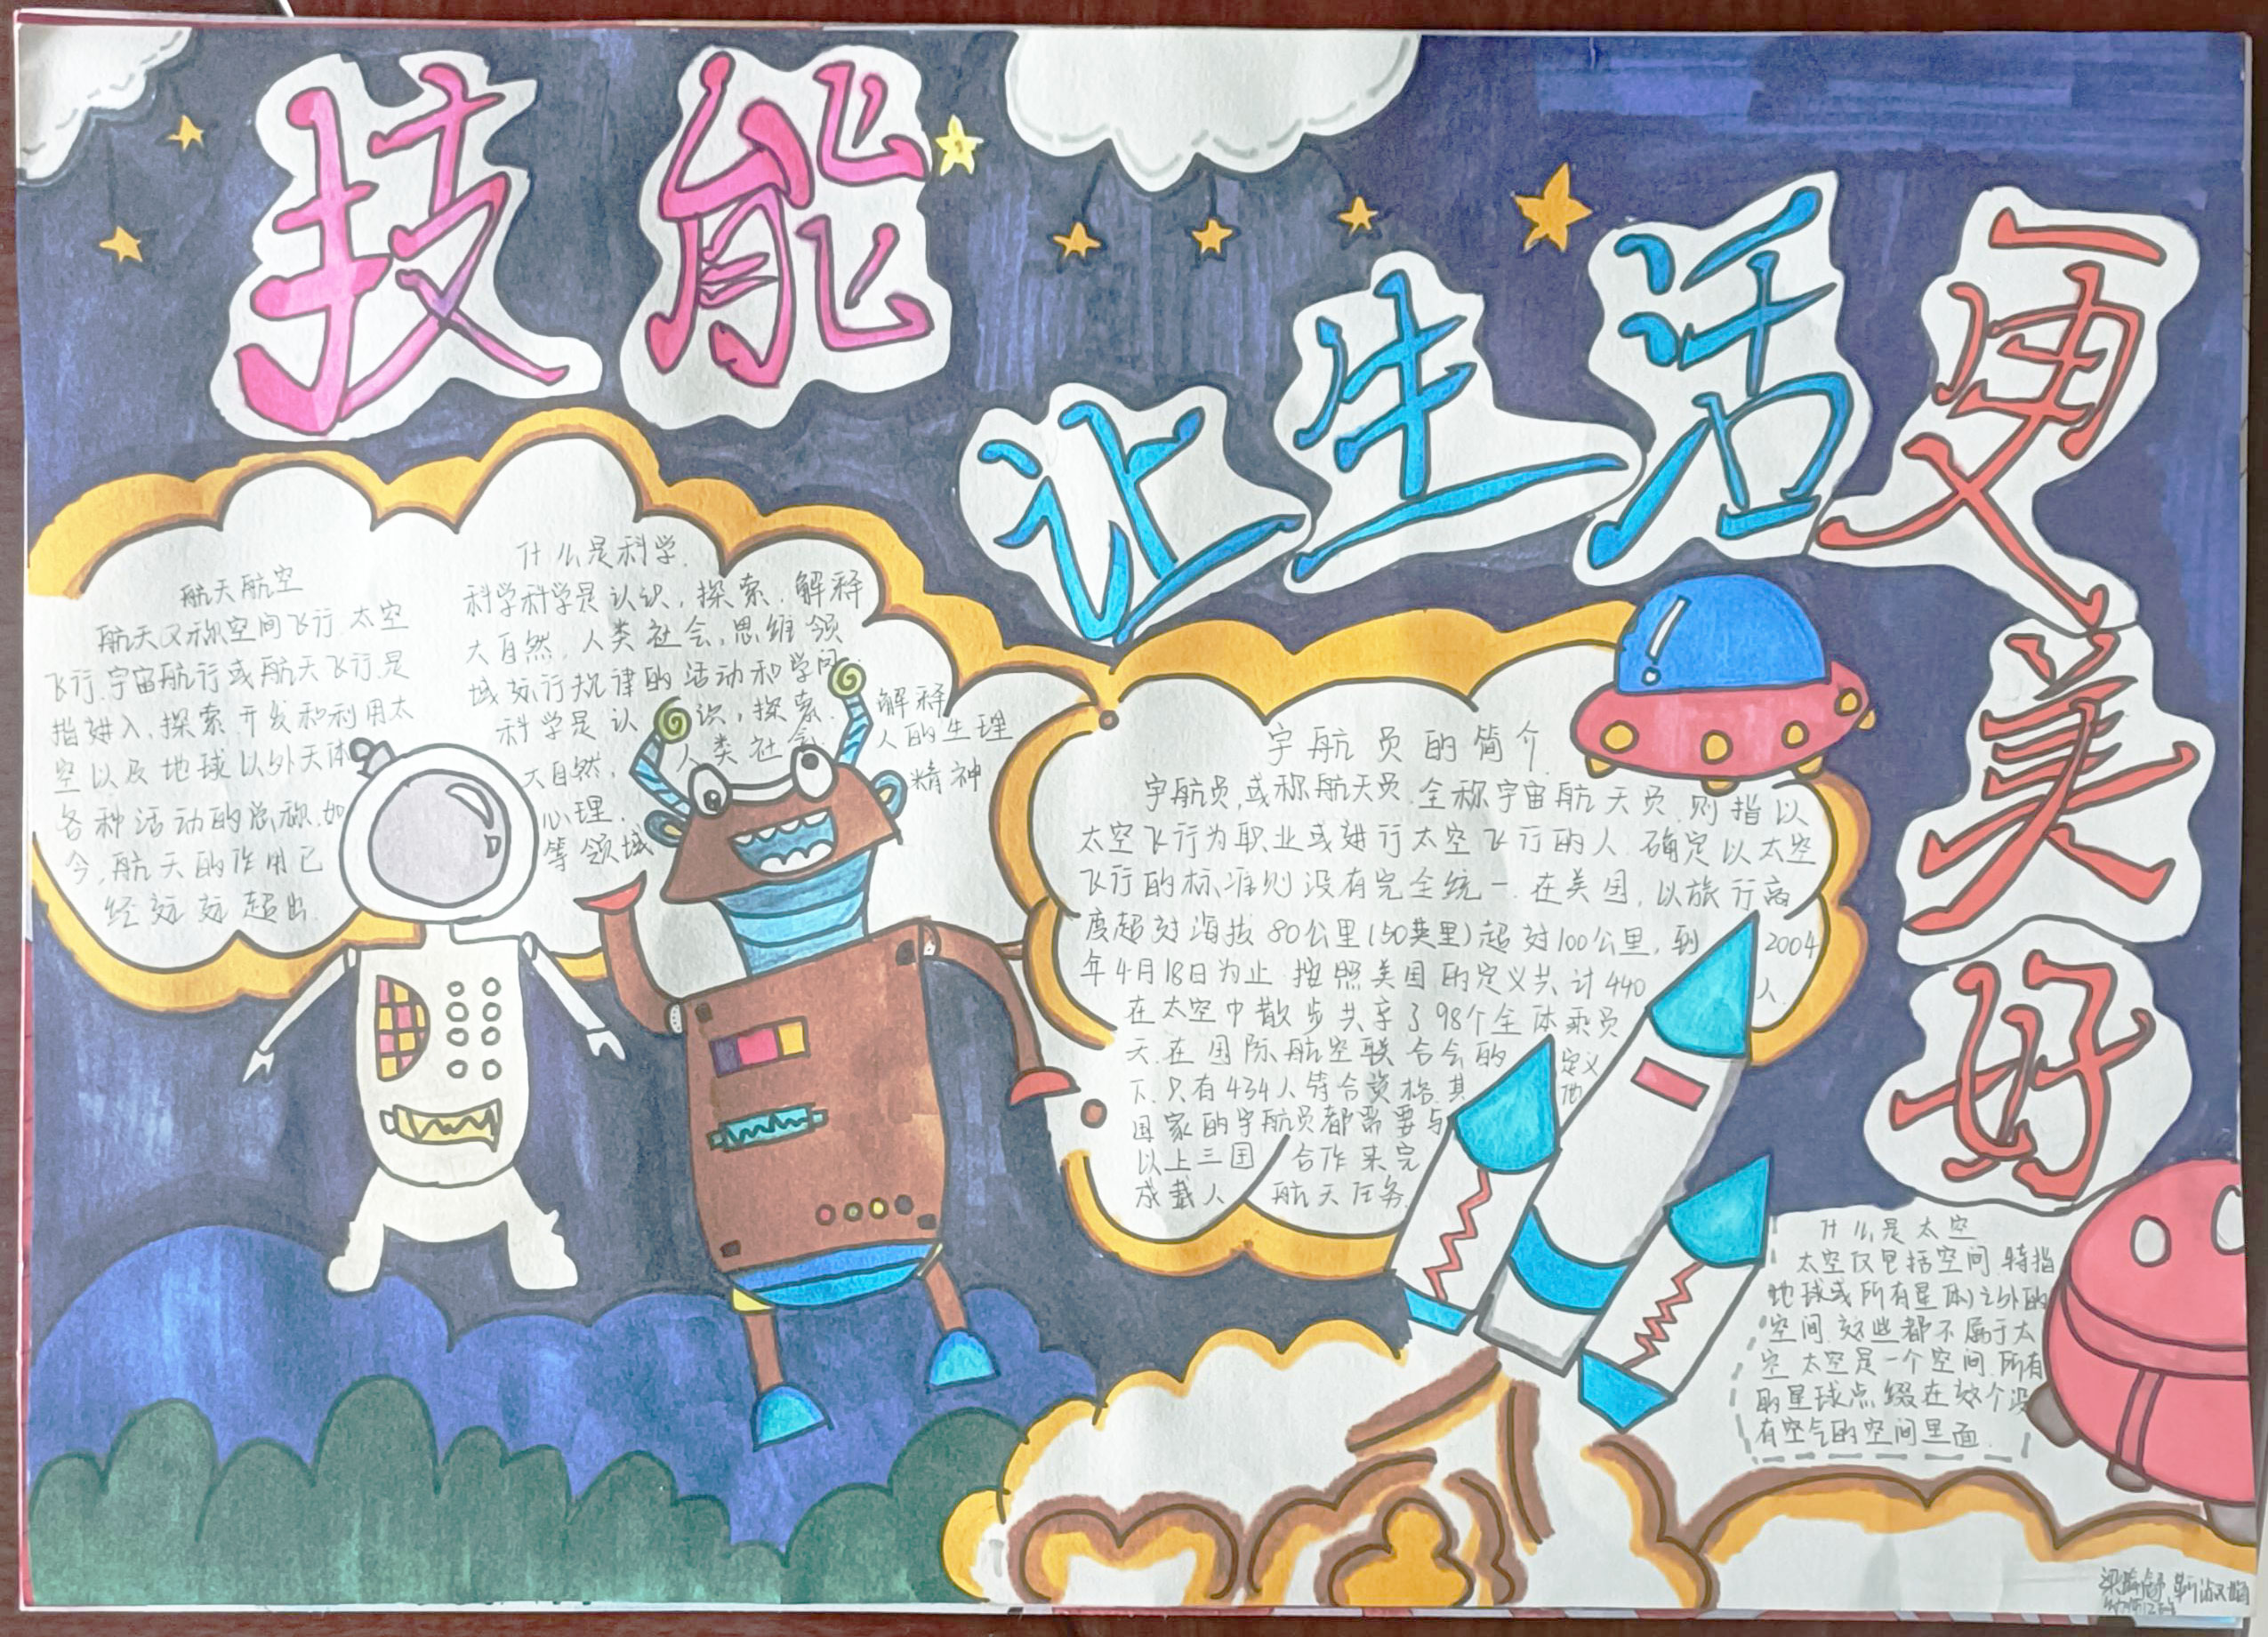 技能
让生活更美好
航天航空
航天又称空间飞行.太空
飞行.宇宙航行或航天飞行是
指进入.探索.开发和利用太
空以及地球以外天体
各种活动的总称.如
今,航天的作用已
经远远超出.
什么是科学.
科学科学是认识,探索.解释
大自然,人类社会,思维领
域运行规律的活动和学问.
科学是认识,探索.解释
大自然,人类社会.人的生理
心理.精神
等领域
宇航员的简介.
宇航员,或称航天员.全称宇宙航天员.则指以
太空飞行为职业或进行太空飞行的人.确定以太空
飞行的标准则没有完全统一.在美国,以旅行高
度超过海拔80公里(50英里)超过100公里,到2004
年4月18日为止.按照美国的定义共计440人.
在太空中散步共享了98个全体乘员
天.在国际航空联合会的定义
下.只有434人符合资格.其他
国家的宇航员都需要与
以上三国合作来完
成载人航天任务.
什么是太空
太空仅包括空间.特指
地球或所有星体之外的
空间.这些都不属于太
空.太空是一个空间.所有
的星球点缀在这个没
有空气的空间里面.